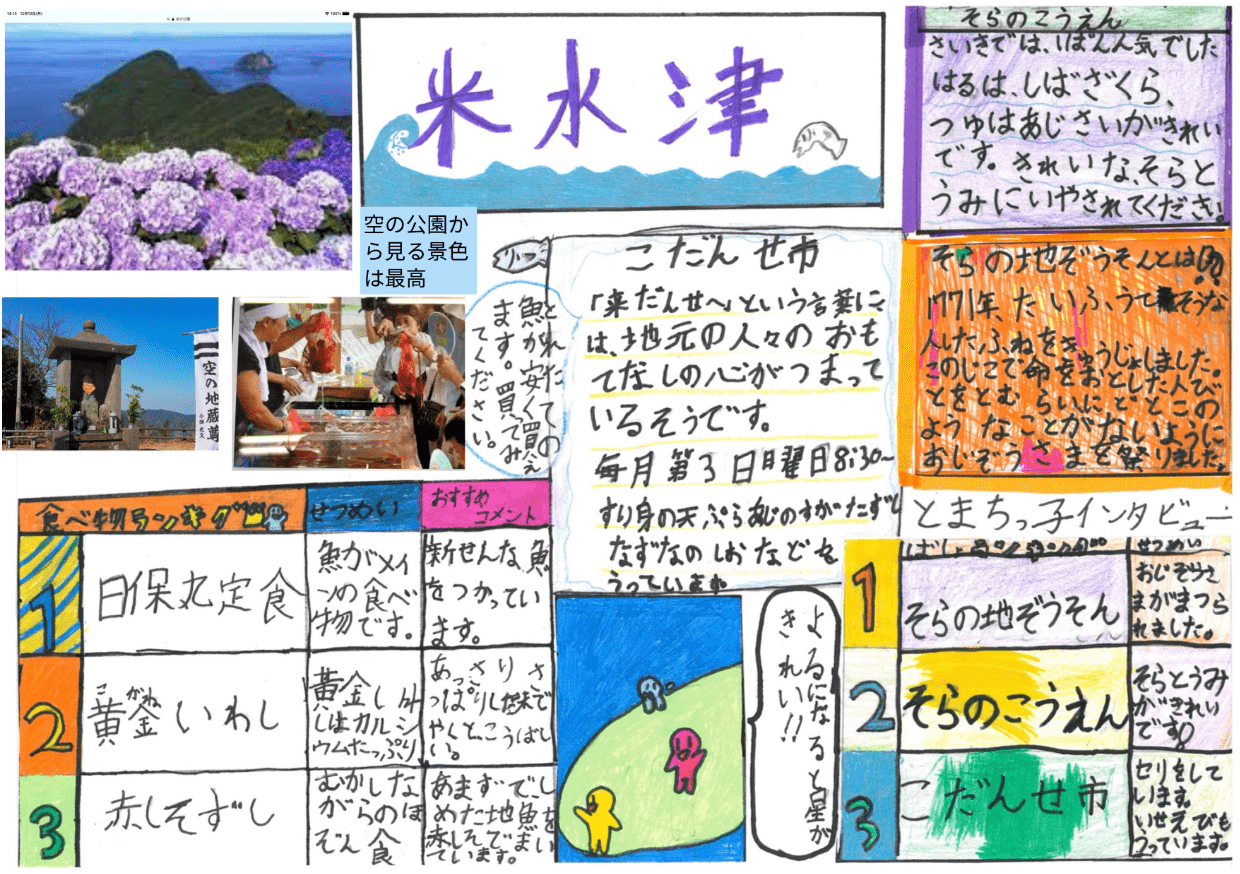 米水津
空の公園か
ら見る景色
は最高
空の地蔵尊
そらのこうえん
さいきでは、1ばん人気でした
はるは、しばざくら、
つゆはあじさいがきれい
です。きれいな、そらと
うみにいやされてください。
こだんせ市
「来だんせ〜」という言葉に
は、地元の人々のおも
てなしの心がつまって
いるそうです。
毎月第3日曜日8:30~
すり身の天ぷらあじのすがたずし
なずなのしおなどを
うっています
とれたての
魚が安く買え
ます。買ってみ
てください。
そらの地ぞうそんとは
1771年、たいふうで
そうな
んしたふねをきゅうじょしました。
このじこで命をおとした人び
とをとむらいにどとこの
ようなことがないように
おじぞうさまを祭りました。
食べ物ランキング
せつめい
おすすめ
コメント
1
日保丸定食
魚がメイ
ンの食べ
物です。
新せんな魚
をつかってい
ます。
2
こがね
黄金いわし
黄金し
しはカルシ
ウムたっぷり
あっさりさ
っぱりし
やくとこうばし
い。
3
赤しそずし
むかしな
がらのほ
ぞん食
あまずでし
めた地魚を
赤しそでまい
ています。
よるになると星が
きれい!!
とまちっ子インタビュー
ばしょランキング
せつめい
1
そらの地ぞうそん
おじぞうさ
まがまつら
れました。
2
そらのこうえん
そらとうみ
がきれい
です
3
こだんせ市
セリをして
います。
いせえびも
うっています。